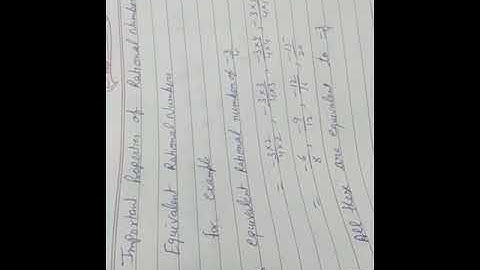 Important Properties of Rational Number
Equivalent Rational Numbers
for example
equivalent Rational number of -3/4
= -3×2/4×2, -3×3/4×3, -3×4/4×4, -3×5/4×5
= -6/8, -9/12, -12/16, -15/20
All these are equivalent to -3/4